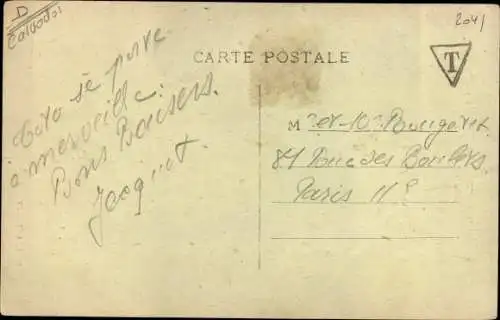 D
Calvados
2041
CARTE POSTALE
T
Toto se porte
à merveille.
Bons Baisers.
Jacquot.
M et Me Bougeret
81 Rue des Boulets
Paris 11e